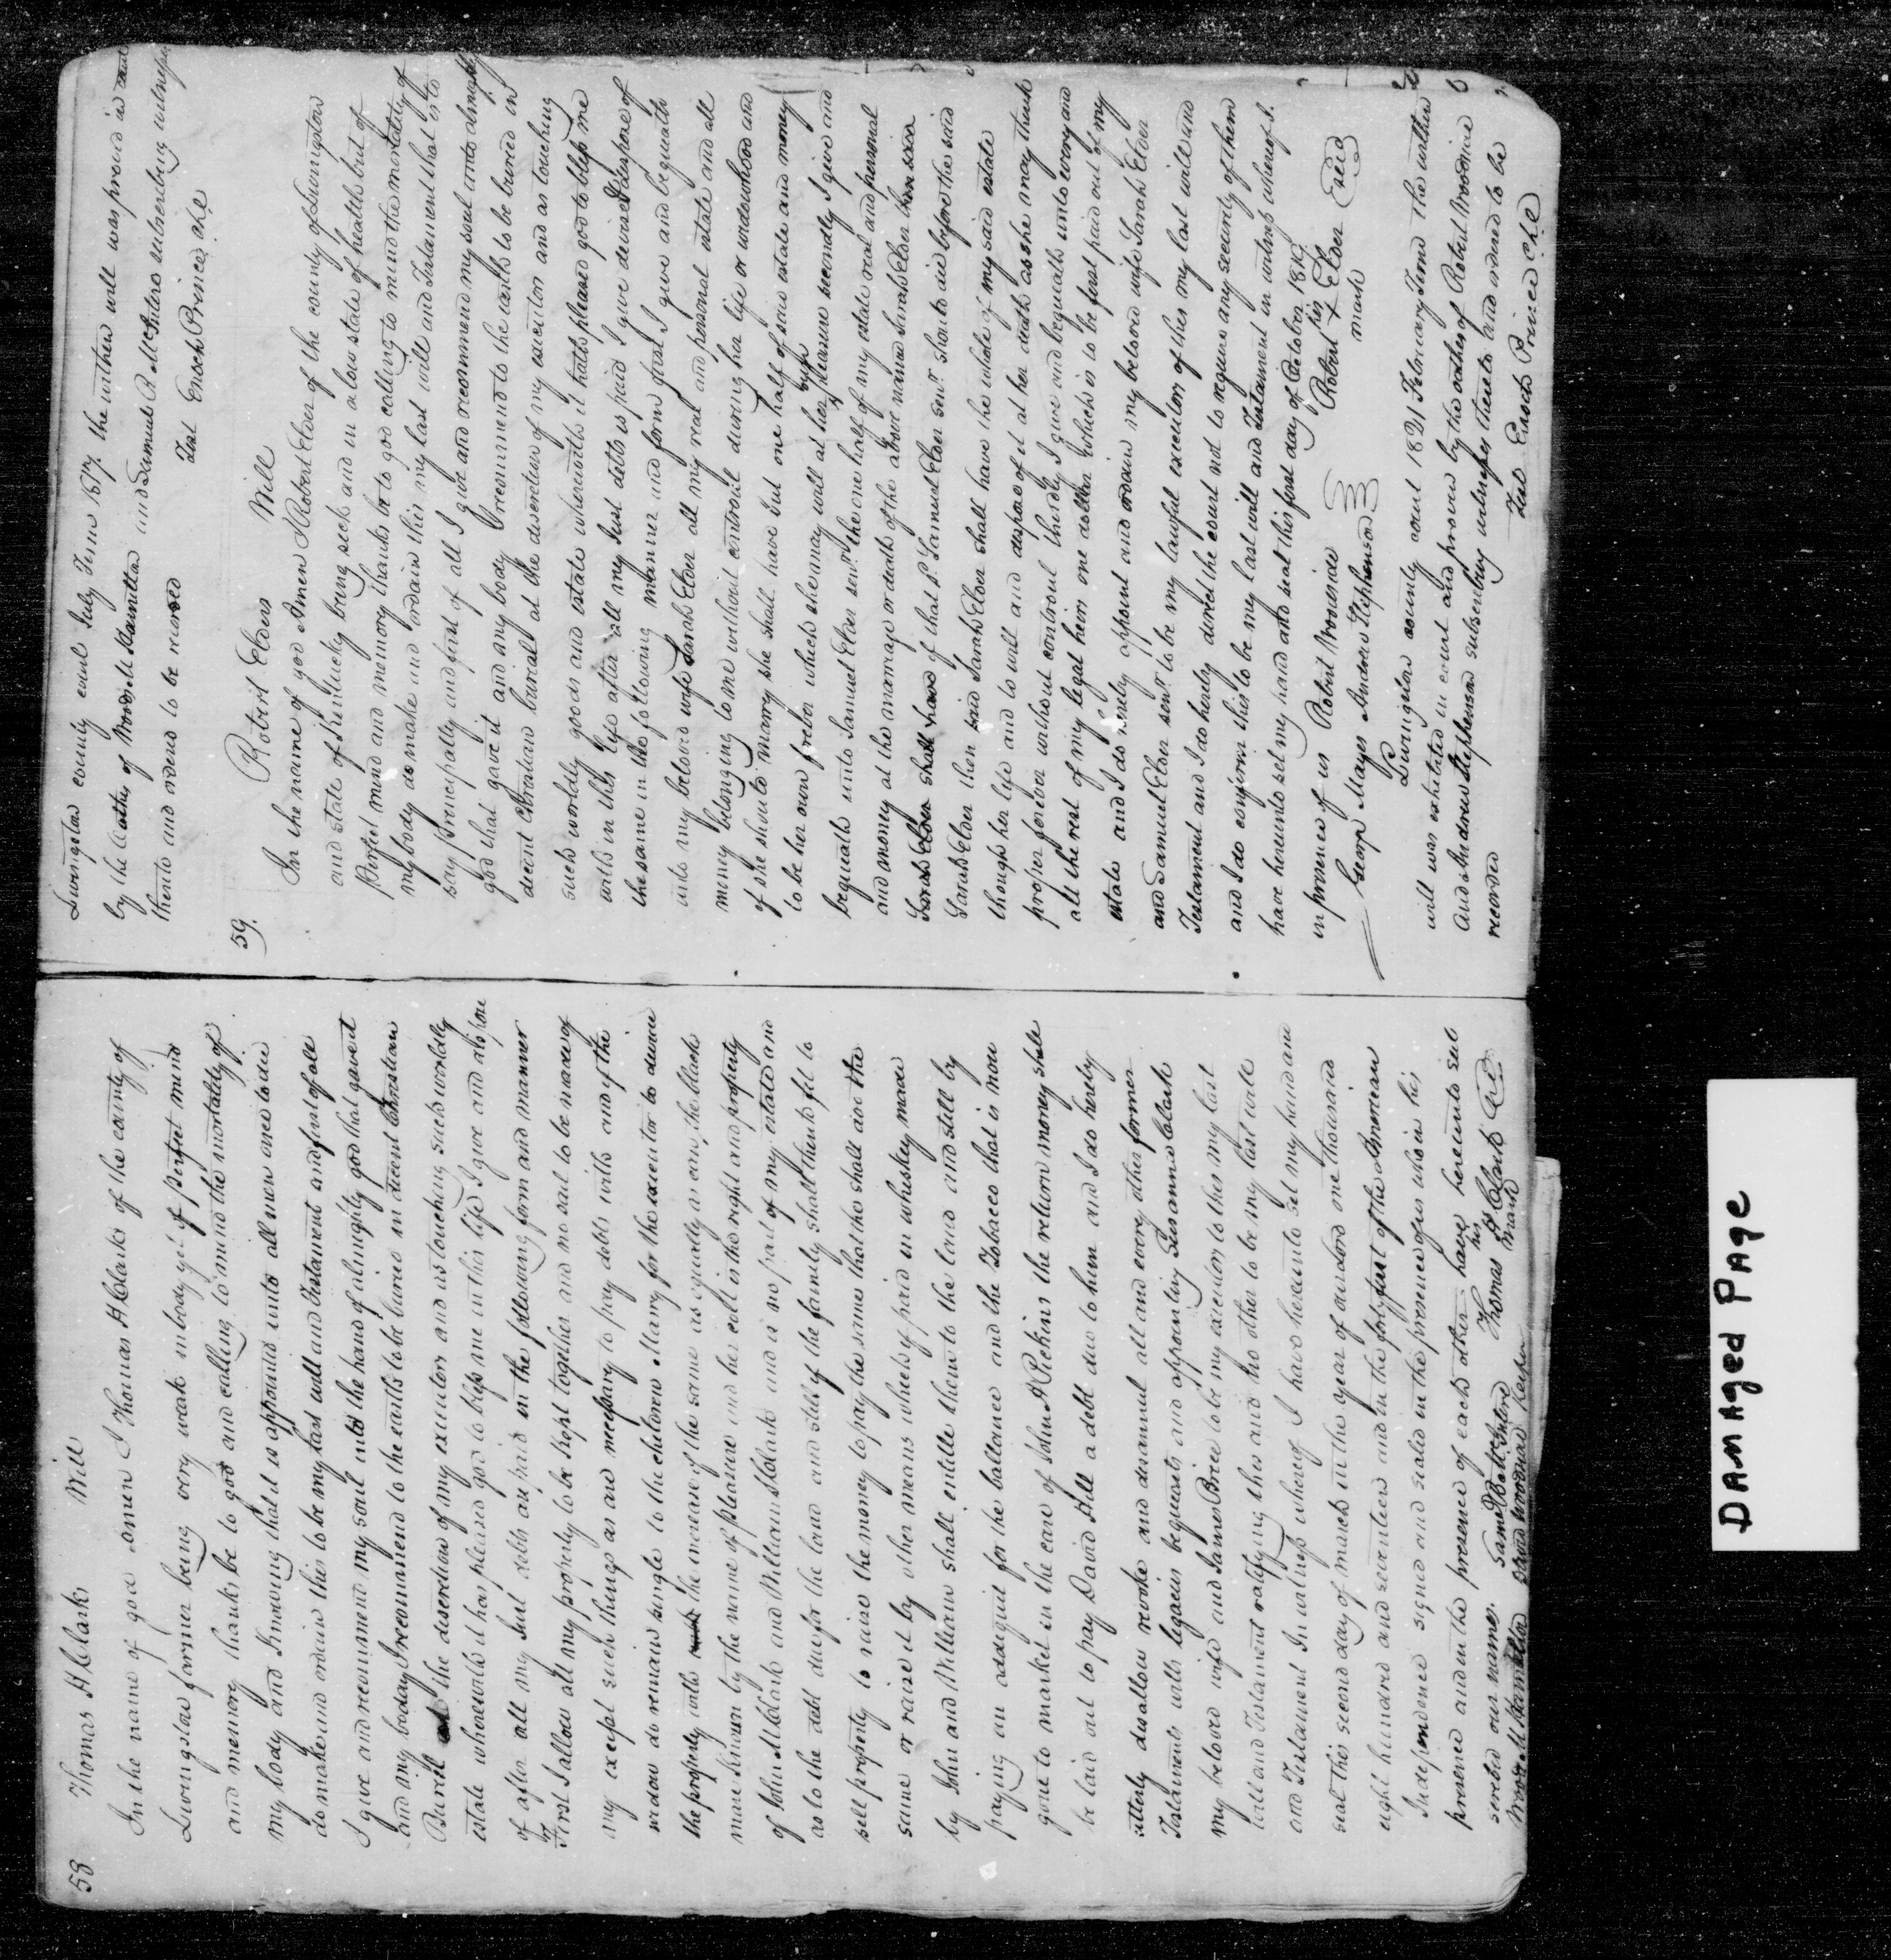 58
Thomas H Clarks Will
In the name of god amen I Thomas H Clarks of the county of
Livingston farmer being very weak in body yet of perfect mind
and memory thanks be to god and calling to mind the mortality of
my body and Knowing that it is appointed unto all men once to die
do make and ordain this to be my last will and Testament and first of all
I give and recommend my soul into the hand of almighty god that gave it
and my boday I recommend to the earth to be buried in decent Christian
Buriel at the discretion of my executors and as touching such worldly
estate wherewith it has pleased god to bless me in this life I give and dispose
of after all my Just debts are paid in the following form and manner
First I allow all my property to be Kept together and no sail to be made of
my except such things as are necessary to pay debts with and if the
widow do remain single to the childrens Marry for the executor to devise
the property with the increase of the same as equally as can, the black
mare known by the name of pleasure and her colt is the right and property
of John M Clark and William Clark and is no part of my estate and
as to the debt due for the land and still if the family shall think fit to
sell property to raise the money to pay the same that the shall aid the
same or raise it by other means which if paid in whiskey made
by John and William shall entitle them to the land and still by
paying an addiquit for the ballance and the Tobacco that is now
gone to market in the care of John A Pickins the return money shall
be laid out to pay David Hill a debt due to him and I do hereby
utterly disallow revoke and disannul all and every other former
Testaments wills legacies bequests and appointing Susanna Clark
my beloved wife and James Brice to be my executors to this my last
will and Testament ratifying this and no other to be my last will
and Testament In witness whereof I have hereunto set my hand and
seal this second day of march in the year of our lord one thousand
eight hundred and seventeen and in the forty first of the American
Independence signed and sealed in the presence of us who in his
presence and in the presence of each other have hereunto sub
scribed our names.
Saml B McIntire
Thomas his H Clark mark
Seal
Livingston county court July Term 1817. the within will was proved in court
by the oaths of Woods M Hamilton and Samuel B McIntire subscribing witnesses
thereto and ordered to be recorded
Test Enoch Prince clk
59.
Robert Elders Will
In the name of god Amen I Robert Elder of the county of Livingston
and state of Kentucky being sick and in a low state of health but of
Perfect mind and memory thanks be to god calling to mind the mortality of
my body do make and ordain this my last will and Testament that is to
say principally and first of all I give and recommend my soul unto almighty
god that gave it and my body I recommend to the earth to be buried in
decent Christian burial at the discretion of my executors and as touching
such worldly goods and estate wherewith it hath pleased god to bless me
with in this life after all my Just debts is paid I give devise & dispose of
the same in the following manner and form first I give and bequeath
unto my beloved wife Sarah Elder all my real and personal estate and all
money belonging to me without controul during her life or widowhood and
if she should marry she shall have but one half of said estate and money
to be her own forever which she may will at her own pleasure secondly I give and
bequeath unto Samuel Elder senr. the one half of my estate real and personal
and money at the marriage or death of the above named Sarah Elder
Sarah Elder shall have if that sd. Samuel Elder senr. should die before the said
Sarah Elder then said Sarah Elder shall have the whole of my said estate
though her life and to will and dispose of it at her death as she may think
proper forever without controul thirdly I give and bequeath unto every and
all the rest of my legal heirs one dollar which is to be first paid out of my
estate and I do hereby appoint and ordain my beloved wife Sarah Elder
and Samuel Elder senr. to be my lawful executors of this my last will and
Testament and I do hereby direct the court not to require any security of them
and I do confirm this to be my last will and Testament in witness whereof I
have hereunto set my hand and seal this first day of October 1819.
in presence of us Robert Woodside Robert his X mark Elder Seal
George Mayes Andrew Stephenson
Livingston county court 1821 February Term the within
will was exhibited in court and proven by the oathes of Robert Woodside
And Andrew Stephenson subscribing witnesses thereto and ordered to be
recorded
Test Enoch Prince clk
DAMAGED PAGE